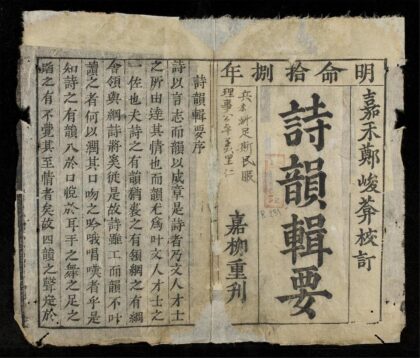 明命拾捌年
嘉禾鄭峻莽校訂
詩韻輯要
嘉柳重刊
足斯民賑
理事公平萬里仁
詩韻輯要序
詩以言志而韻以成章是詩者乃文人才士
之所由達其情也而韻尤為叶文人才士之
一佐也夫詩之有韻猶裘之有領網之有綱
舍領與綱詩將奚從是故詩雖工而韻不叶
讀之者何以潤其口吻之吟哦唱嘆者乎是
知詩之有韻入於口悅於耳手之舞之足之
蹈之有不覺其至情者矣故四韻之聲是於